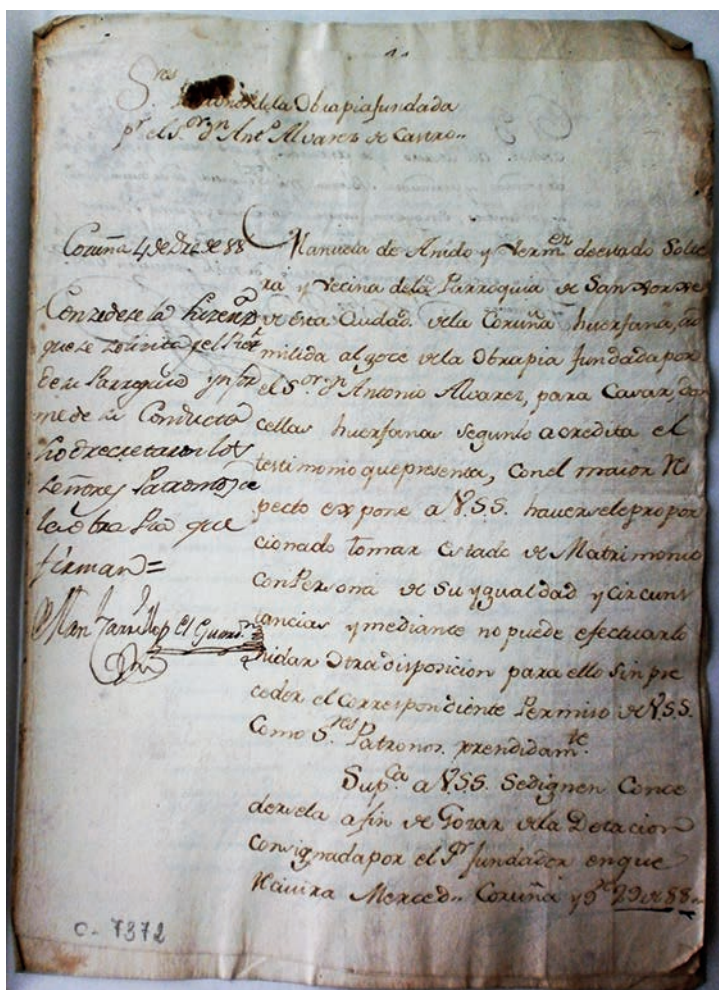 Sres
Patronos de la Obrapia fundada
pr el Sor Dn Anto Alvarez de Castro..
Coruña 4 de Dre de 88
Conzedese la lizena
que se zolizita
de su Parroquia ynfor
me de su Conducta
lo decretaron los
señores Patronos de
la obra Pia que
firman=
Manuela de Anido y Vermez de estado Solte
ra y Vecina dela Parroquia de San
de esta Ciudad dela Coruña huerfana, ad
mitida al goze dela Obrapia fundada por
el Sor Dn Antonio Alvarez, para Casar, don
cellas huerfanas segun lo acredita el
testimonio que presenta, con el maior Res
pecto expone a V.S.S. haversele propor
cionado tomar Estado de Matrimonio
con Persona de Su ygualdad y Circuns
tancias y mediante no puede efectuarlo
nidar Otra disposicion para ello sin pre
ceder el Correspondiente Permiso de V.S.S.
Como Sres Patronos. rendidamte
Supca a V.S.S. Sedignen Conce
dersela afin de Gozar dela Dotacion
Consignada por el fundador en que
Merced.. Coruña y 29 de 88..
C-7372